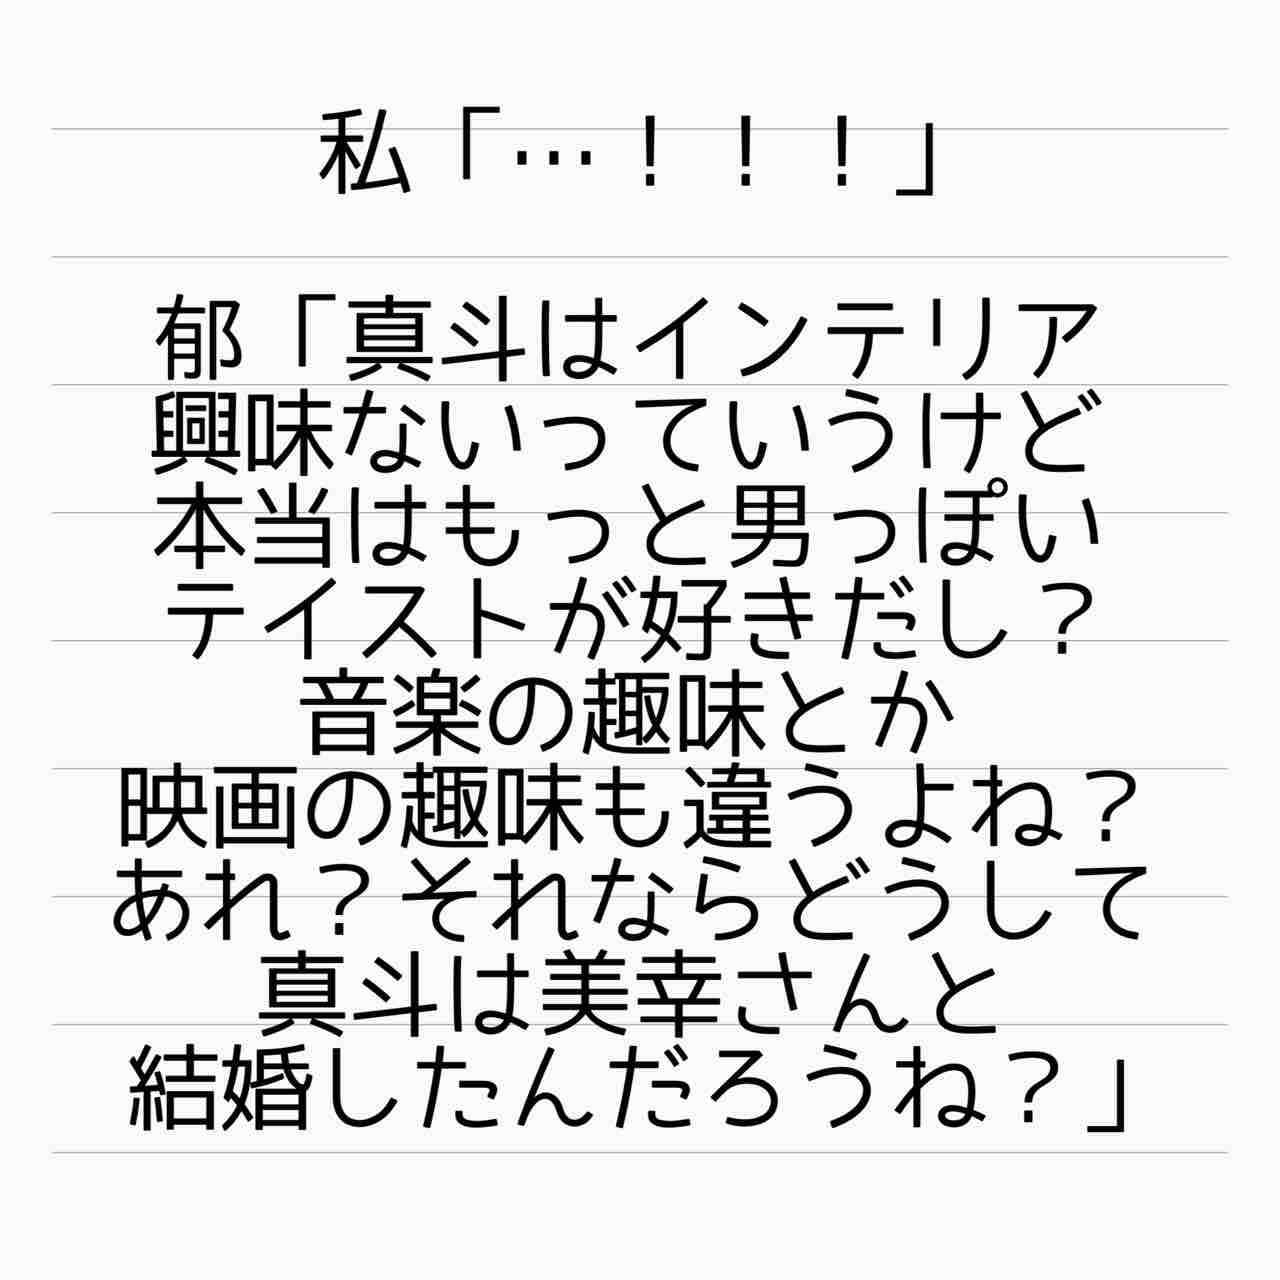 私「…！！！」
郁「真斗はインテリア
興味ないっていうけど
本当はもっと男っぽい
テイストが好きだし？
音楽の趣味とか
映画の趣味も違うよね？
あれ？それならどうして
真斗は美幸さんと
結婚したんだろうね？」